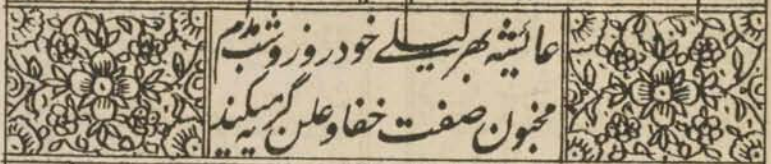 عائشه بهر لیلے خود روز و شب مدام
مجنون صفت خفا و علن گریه میکند